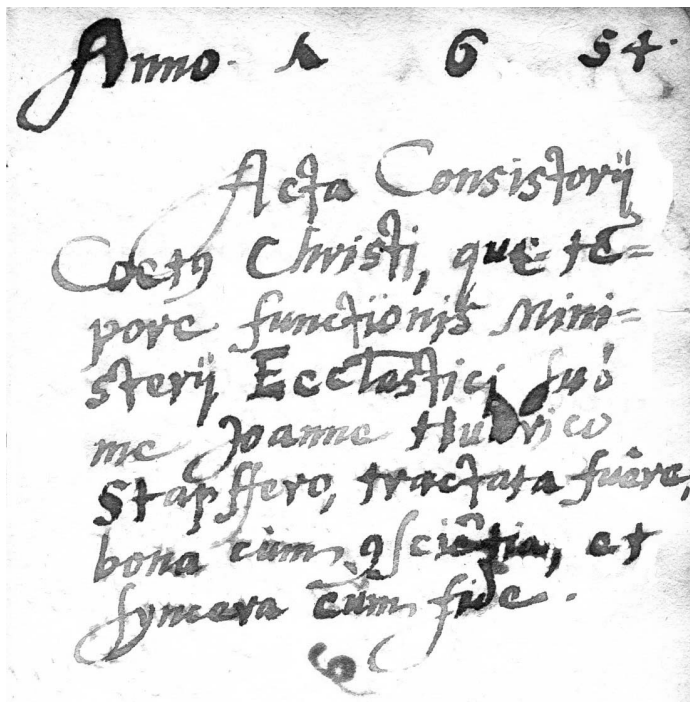 Anno. 1 6 54.
Acta Consistorij
Coetꝰ Christi, que tē=
pore functionis Mini=
sterij Eccl̅astici sub
me Joanne Huldrico
Stapffero, tractata fuêre,
bona cùm ꝯsciẽtia, et
syncera cùm fide.